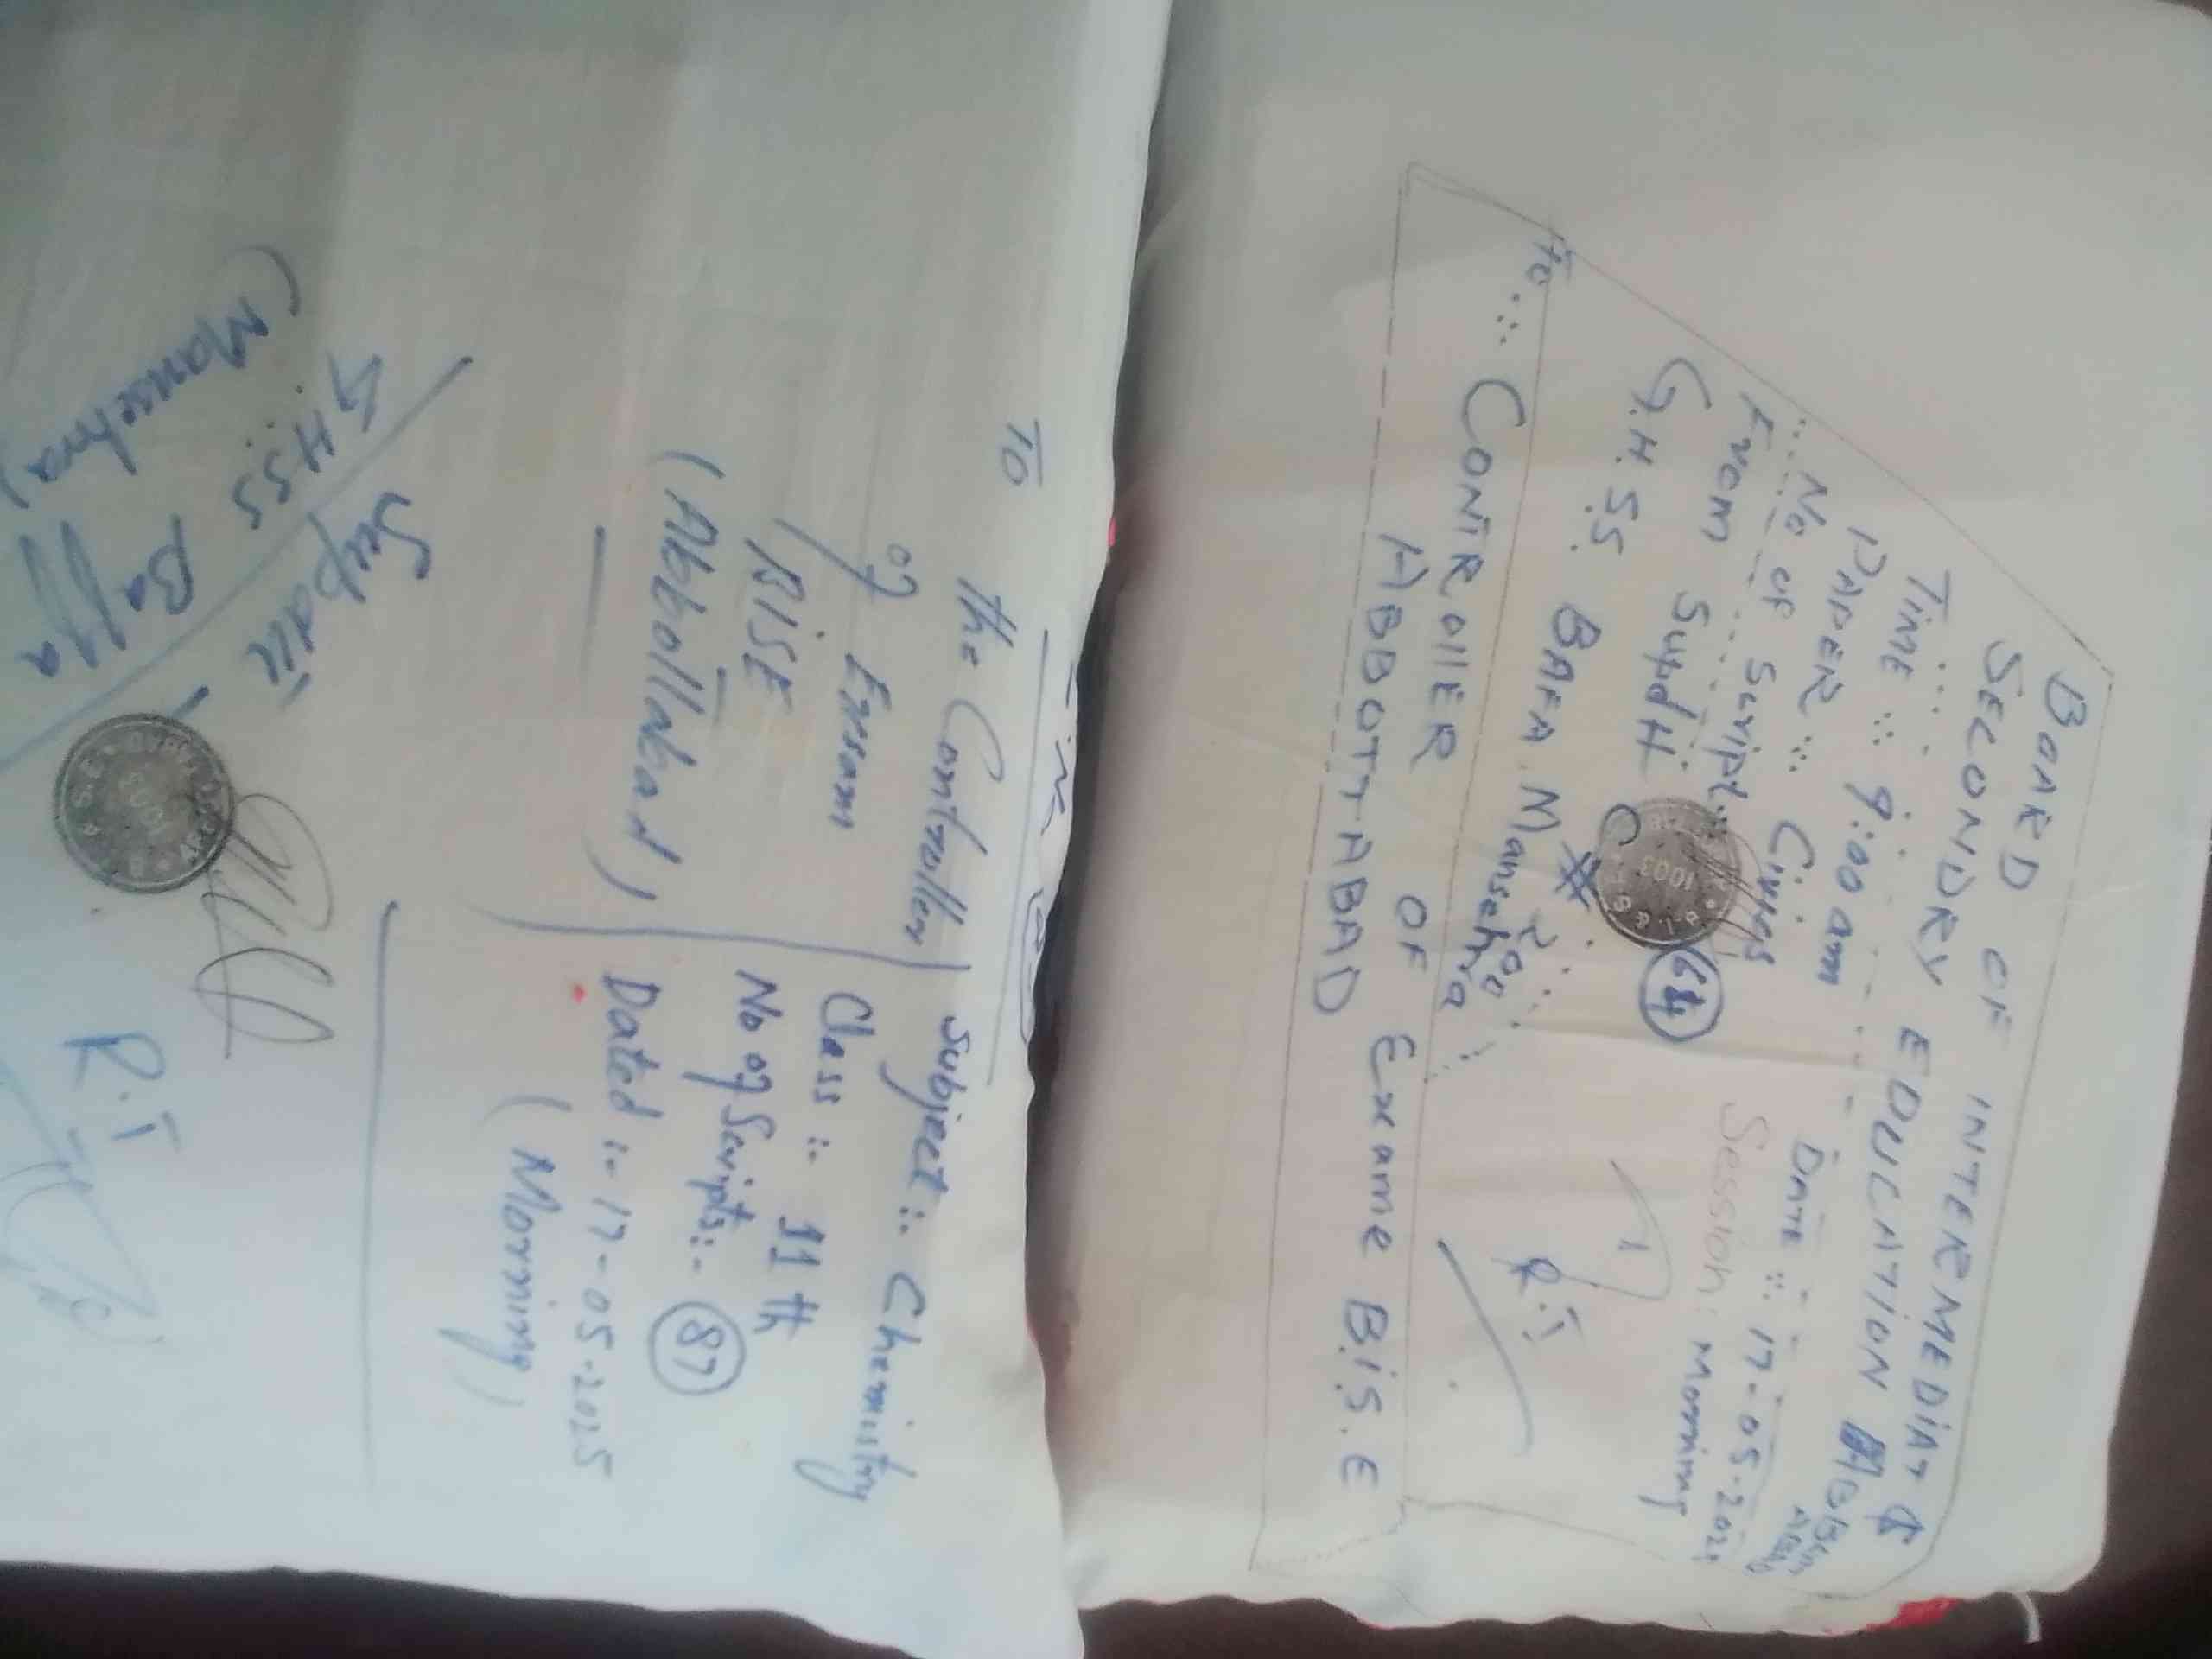 BOARD OF INTERMEDIAT &
SECONDRY EDUCATION
TIME :: 9:00 am
DATE :: 17-05-2025
PAPER :: Civics
Session: Morning
No of Script::
64
From Supdtt:
G.H.S.S. BAFA. Mansehra
R.I
To... CONTROLLER OF Exame B.I.S.E
ABBOTTABAD
1003
To
The Controller
of Exam
BISE
(Abbottabad)
Subject:- Chemistry
Class:- 11th
No of Scripts:- 87
Dated:- 17-05-2025
(Morning)
Supdtt
GHSS Baffa
(Mansehra)
1003
R.I